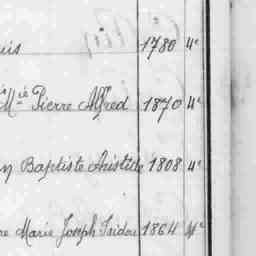 uis 1780 4e
Mie Pierre Alfred 1870 4e
n Baptiste Aristide 1808 4e
re Marie Joseph Isidore 1864 4e